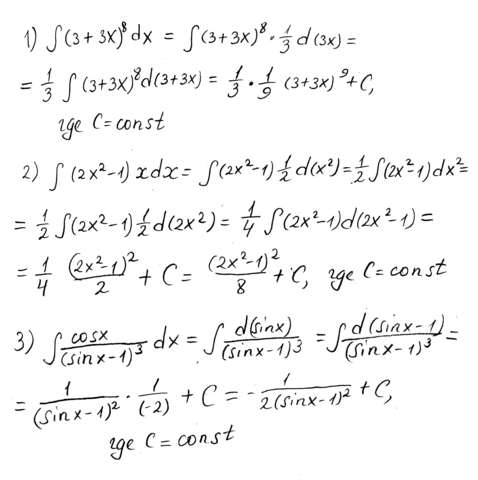 1) ∫(3+3x)⁸dx = ∫(3+3x)⁸·1/3 d(3x)=
= 1/3 ∫(3+3x)⁸d(3+3x) = 1/3·1/9 (3+3x)⁹+C,
где C=const
2) ∫(2x²-1)xdx = ∫(2x²-1)1/2 d(x²)=1/2∫(2x²-1)dx²=
= 1/2∫(2x²-1)1/2 d(2x²) = 1/4∫(2x²-1)d(2x²-1) =
= 1/4 (2x²-1)²/2 + C = (2x²-1)²/8 + C, где C=const
3) ∫cosx/(sinx-1)³ dx = ∫d(sinx)/(sinx-1)³ = ∫d(sinx-1)/(sinx-1)³ =
= 1/(sinx-1)² · 1/(-2) + C = - 1/2(sinx-1)² + C,
где C=const